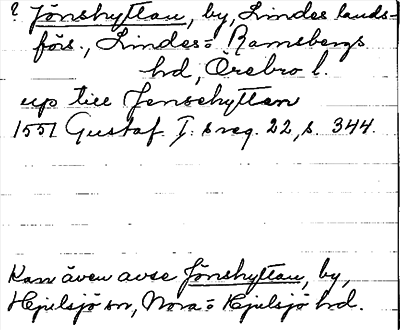 ? Jönshyttan, by, Lindes lands-
förs., Lindes- o Ramsbergs
hd, Örebro l.
up till Jenschyttan
1551 Gustaf I:s reg. 22, s. 344.
Kan även avse Jönshyttan, by,
Hjulsjö sn, Nora- o Hjulsjö hd.